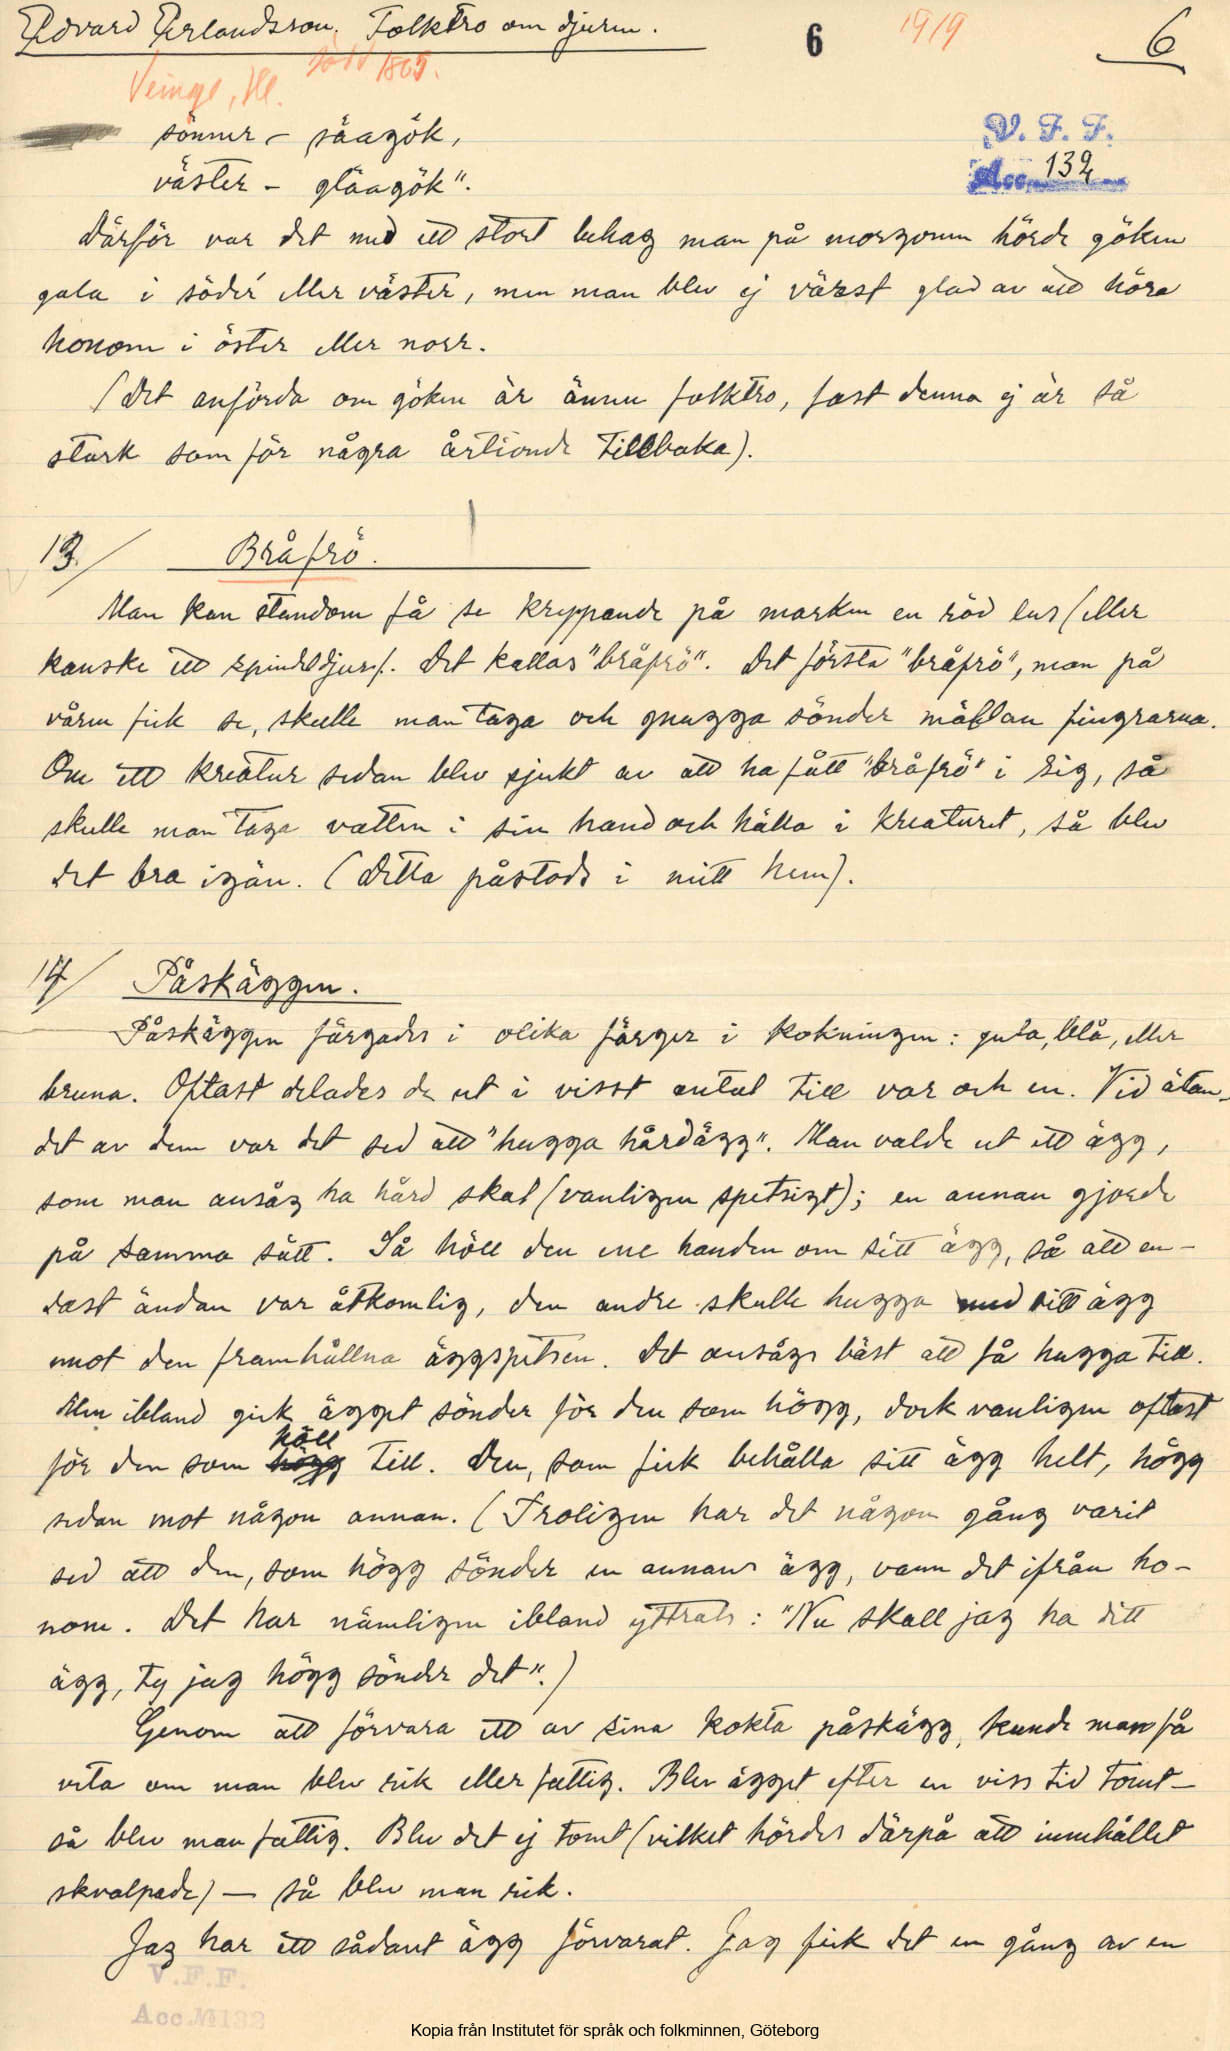 Edvard Erlandsson. Folktro om djuren. 6 1919 6
Veinge, Hl. född 1869.
sönner – säagök,
väster – gläagök".
V. F. F.
Acc. 132
Därför var det med ett stort behag man på morgonen hörde göken
gala i söder eller väster, men man blev ej värst glad av att höra
honom i öster eller norr.
(Det anförda om göken är ännu folktro, fast denna ej är så
stark som för några årtionde tillbaka).
13/ Bråfrö.
Man kan stundom få se kryppande på marken en röd lus (eller
kanske ett spindeldjur). Det kallas "bråfrö". Det första "bråfrö", man på
våren fick se, skulle man taga och gnugga sönder mällan fingrarna.
Om ett kreatur sedan blev sjukt av att ha fått "bråfrö" i sig, så
skulle man taga vatten i sin hand och hälla i kreaturet, så blev
det bra igän. (Detta påstods i mitt hem).
14/ Påskäggen.
Påskäggen färgades i olika färger i kokningen: gula, blå, eller
bruna. Oftast delades de ut i visst antal till var och en. Vid ätan-
det av dem var det sed att "hugga hårdägg". Man valde ut ett ägg,
som man ansåg ha hård skal (vanligen spetsigt); en annan gjorde
på samma sätt. Så höll den ene handen om sitt ägg, så att en-
dast ändan var åtkomlig, den andre skulle hugga med sitt ägg
mot den framhållna äggspetsen. Det ansågs bäst att få hugga till.
Men ibland gick ägget sönder för den som högg, dock vanligen oftast
höll
för den som högg till. Den, som fick behålla sitt ägg helt, högg
sedan mot någon annan. (Troligen har det någon gång varit
sed att den, som högg sönder en annans ägg, vann det ifrån ho-
nom. Det har nämligen ibland yttrats: "Nu skall jag ha ditt
ägg, ty jag högg sönder det".)
Genom att förvara ett av sina kokta påskägg, kunde man få
veta om man blev rik eller fattig. Blev ägget efter en viss tid tomt –
så blev man fattig. Blev det ej tomt (vilket hördes därpå att innehållet
skvalpade) – så blev man rik.
Jag har ett sådant ägg förvarat. Jag fick det en gång av en
V.F.F.
Acc.№132
Kopia från Institutet för språk och folkminnen, Göteborg